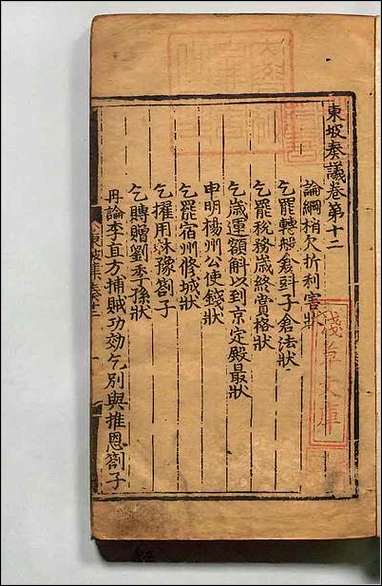 東坡奏議卷第十二
論綱梢欠折利害狀
乞罷轉般倉㪷子倉法狀
乞罷稅務歲終賞格狀
乞歲運額斛以到京定殿最狀
申明楊州公使錢狀
乞罷宿州修城狀
乞擢用林豫劄子
乞賻贈劉季孫狀
再論李直方捕賊功効乞別與推恩劄子
淺草文庫